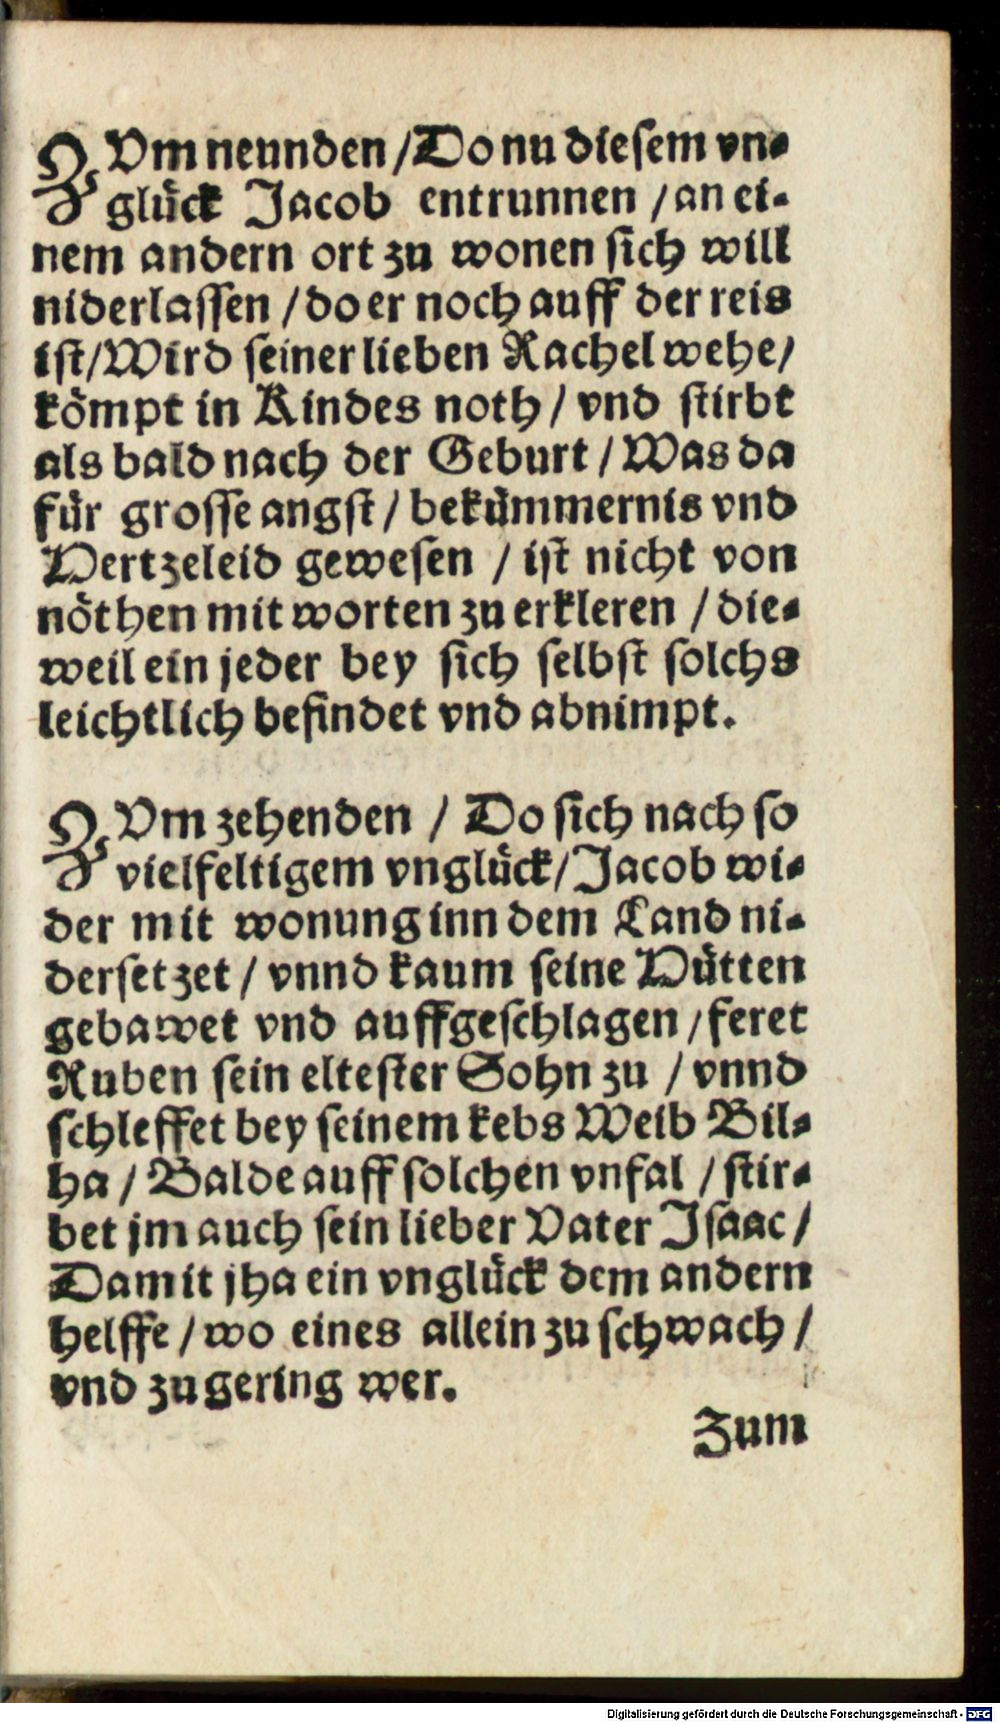 ZVm neunden / Do nu diesem vn-
glück Jacob entrunnen / an ei-
nem andern ort zu wonen sich will
niderlassen / do er noch auff der reis
ist / Wird seiner lieben Rachel wehe /
kömpt in Kindes noth / vnd stirbt
als bald nach der Geburt / Was da
für grosse angst / bekümmernis vnd
Hertzeleid gewesen / ist nicht von
nöthen mit worten zu erkleren / die-
weil ein jeder bey sich selbst solchs
leichtlich befindet vnd abnimpt.
ZVm zehenden / Do sich nach so
vielfeltigem vnglück / Jacob wi-
der mit wonung inn dem Land ni-
dersetzet / vnnd kaum seine Hütten
gebawet vnd auffgeschlagen / feret
Ruben sein eltester Sohn zu / vnnd
schleffet bey seinem kebs Weib Bil-
ha / Balde auff solchen vnfal / stir-
bet jm auch sein lieber Vater Isaac /
Damit jha ein vnglück dem andern
helffe / wo eines allein zu schwach /
vnd zu gering wer.
Zum
Digitalisierung gefördert durch die Deutsche Forschungsgemeinschaft - DFG